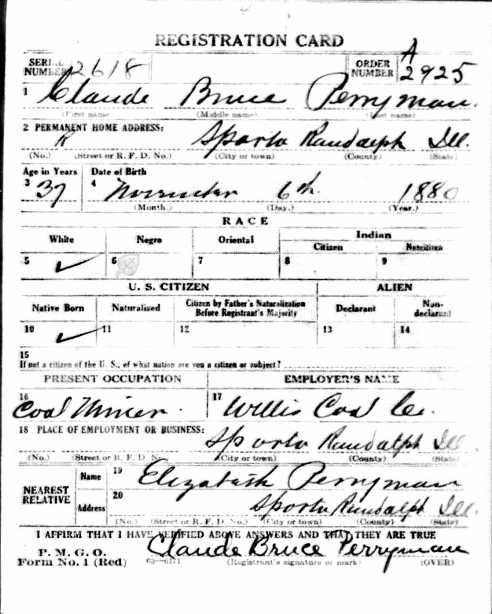 REGISTRATION CARD
SERIAL NUMBER 2618 ORDER NUMBER A 2925
1 Claude Bruce Perryman
(First name) (Middle name) (Last name)
2 PERMANENT HOME ADDRESS:
Sparta Randolph Ill.
(No.) (Street or R. F. D. No.) (City or town) (County) (State)
Age in Years Date of Birth
3 37 4 November 6th 1880
(Month.) (Day.) (Year.)
RACE
White Negro Oriental Indian
Citizen Noncitizen
5 ✓ 6 7 8 9
U. S. CITIZEN ALIEN
Native Born Naturalized Citizen by Father's Naturalization Before Registrant's Majority Declarant Non-declarant
10 ✓ 11 12 13 14
15
If not a citizen of the U. S., of what nation are you a citizen or subject?
PRESENT OCCUPATION EMPLOYER'S NAME
16 Coal Miner. 17 Willis Coal Co.
18 PLACE OF EMPLOYMENT OR BUSINESS:
Sparta Randolph Ill
(No.) (Street or R. F. D. No.) (City or town) (County) (State)
NEAREST RELATIVE
Name 19 Elizabeth Perryman
Address 20 Sparta Randolph Ill.
(No.) (Street or R. F. D. No.) (City or town) (County) (State)
I AFFIRM THAT I HAVE VERIFIED ABOVE ANSWERS AND THAT THEY ARE TRUE
P. M. G. O.
Form No. 1 (Red) Claude Bruce Perryman
(Registrant's signature or mark) (OVER)